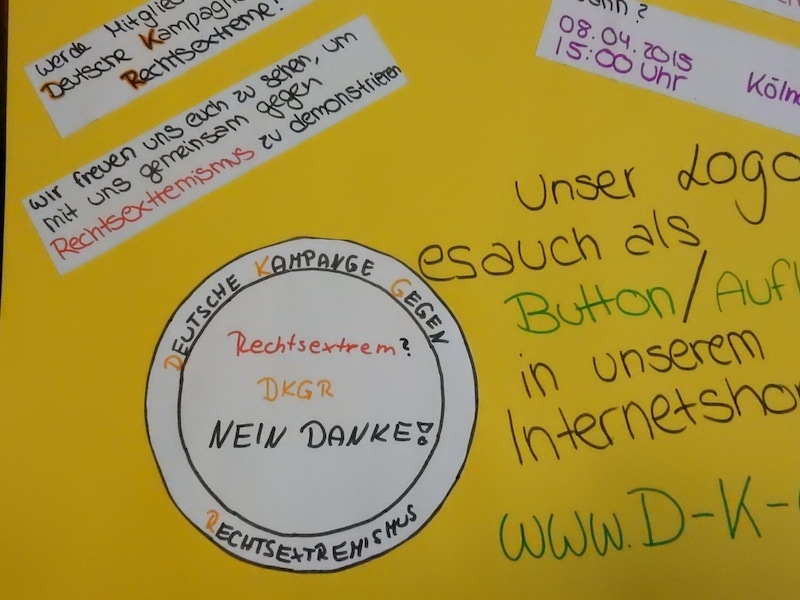 Werde Mitglied
Deutsche Kampagne
Rechtsextreme!
wir freuen uns euch zu sehen, um
mit uns gemeinsam gegen
Rechtsextremismus zu demonstrieren
08.04.2015
15:00 Uhr
Köln
DEUTSCHE KAMPANGE GEGEN
Rechtsextrem?
DKGR
NEIN DANKE!
RECHTSEXTREMISMUS
Unser Logo
es auch als
Button/Aufk
in unserem
Internetshop
www.D-K-